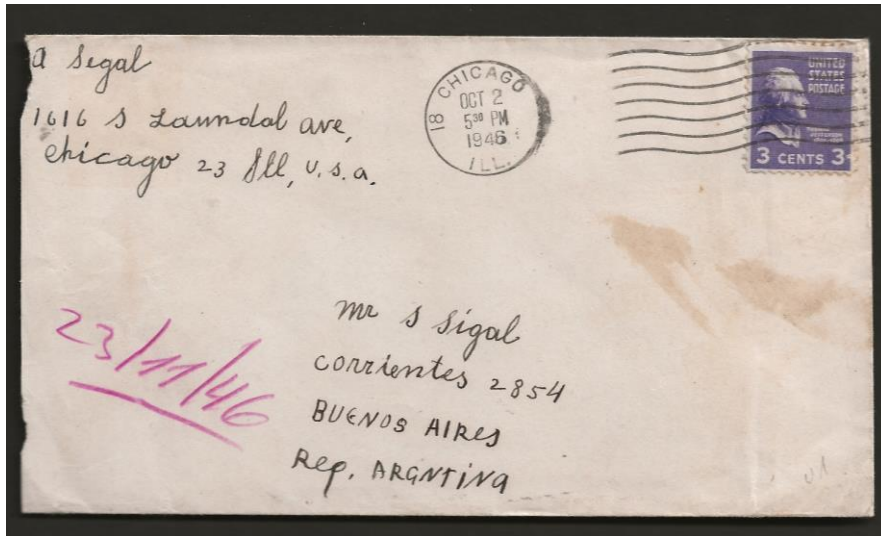 A Segal
1616 S Laundal ave,
Chicago 23 Ill, U.S.A.
CHICAGO
18
OCT 2
5³⁰ PM
1946
ILL.
UNITED
STATES
POSTAGE
3 CENTS 3
23/11/46
Mr S Sigal
Corrientes 2854
BUENOS AIRES
Rep. ARGNTINA